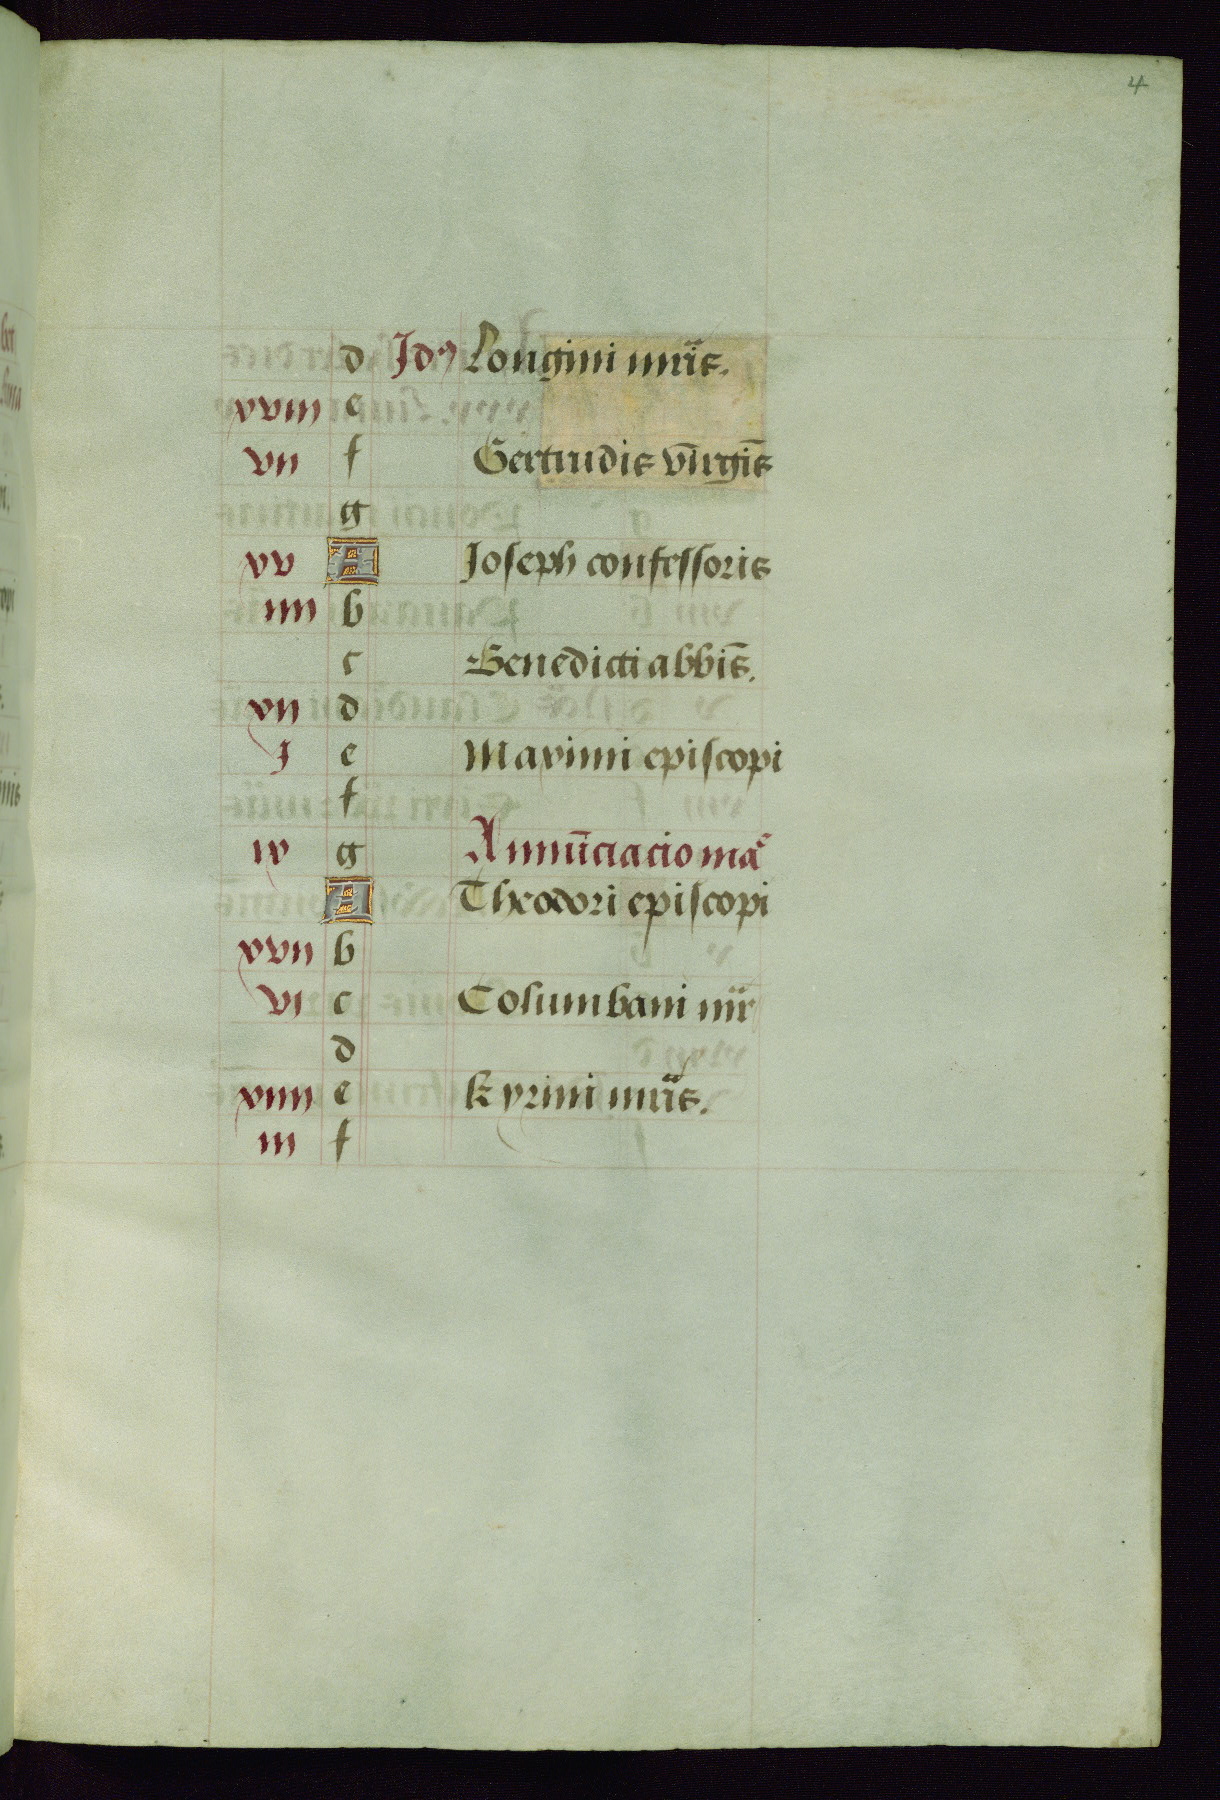 4
d Idꝰ Longini mr̄is.
xvııı e
vıı f Gertrudis vīrgīs
g
xv A Joseph confessoris
ıııı b
c Benedicti abbīs.
xıı d
ȷ e Maximi episcopi
f
ıx g Annūciacio ma͛
A Theodori episcopi
xvıı b
vı c Columbani mr̄
d
xıııı e kyrini mr̄is.
ııı f